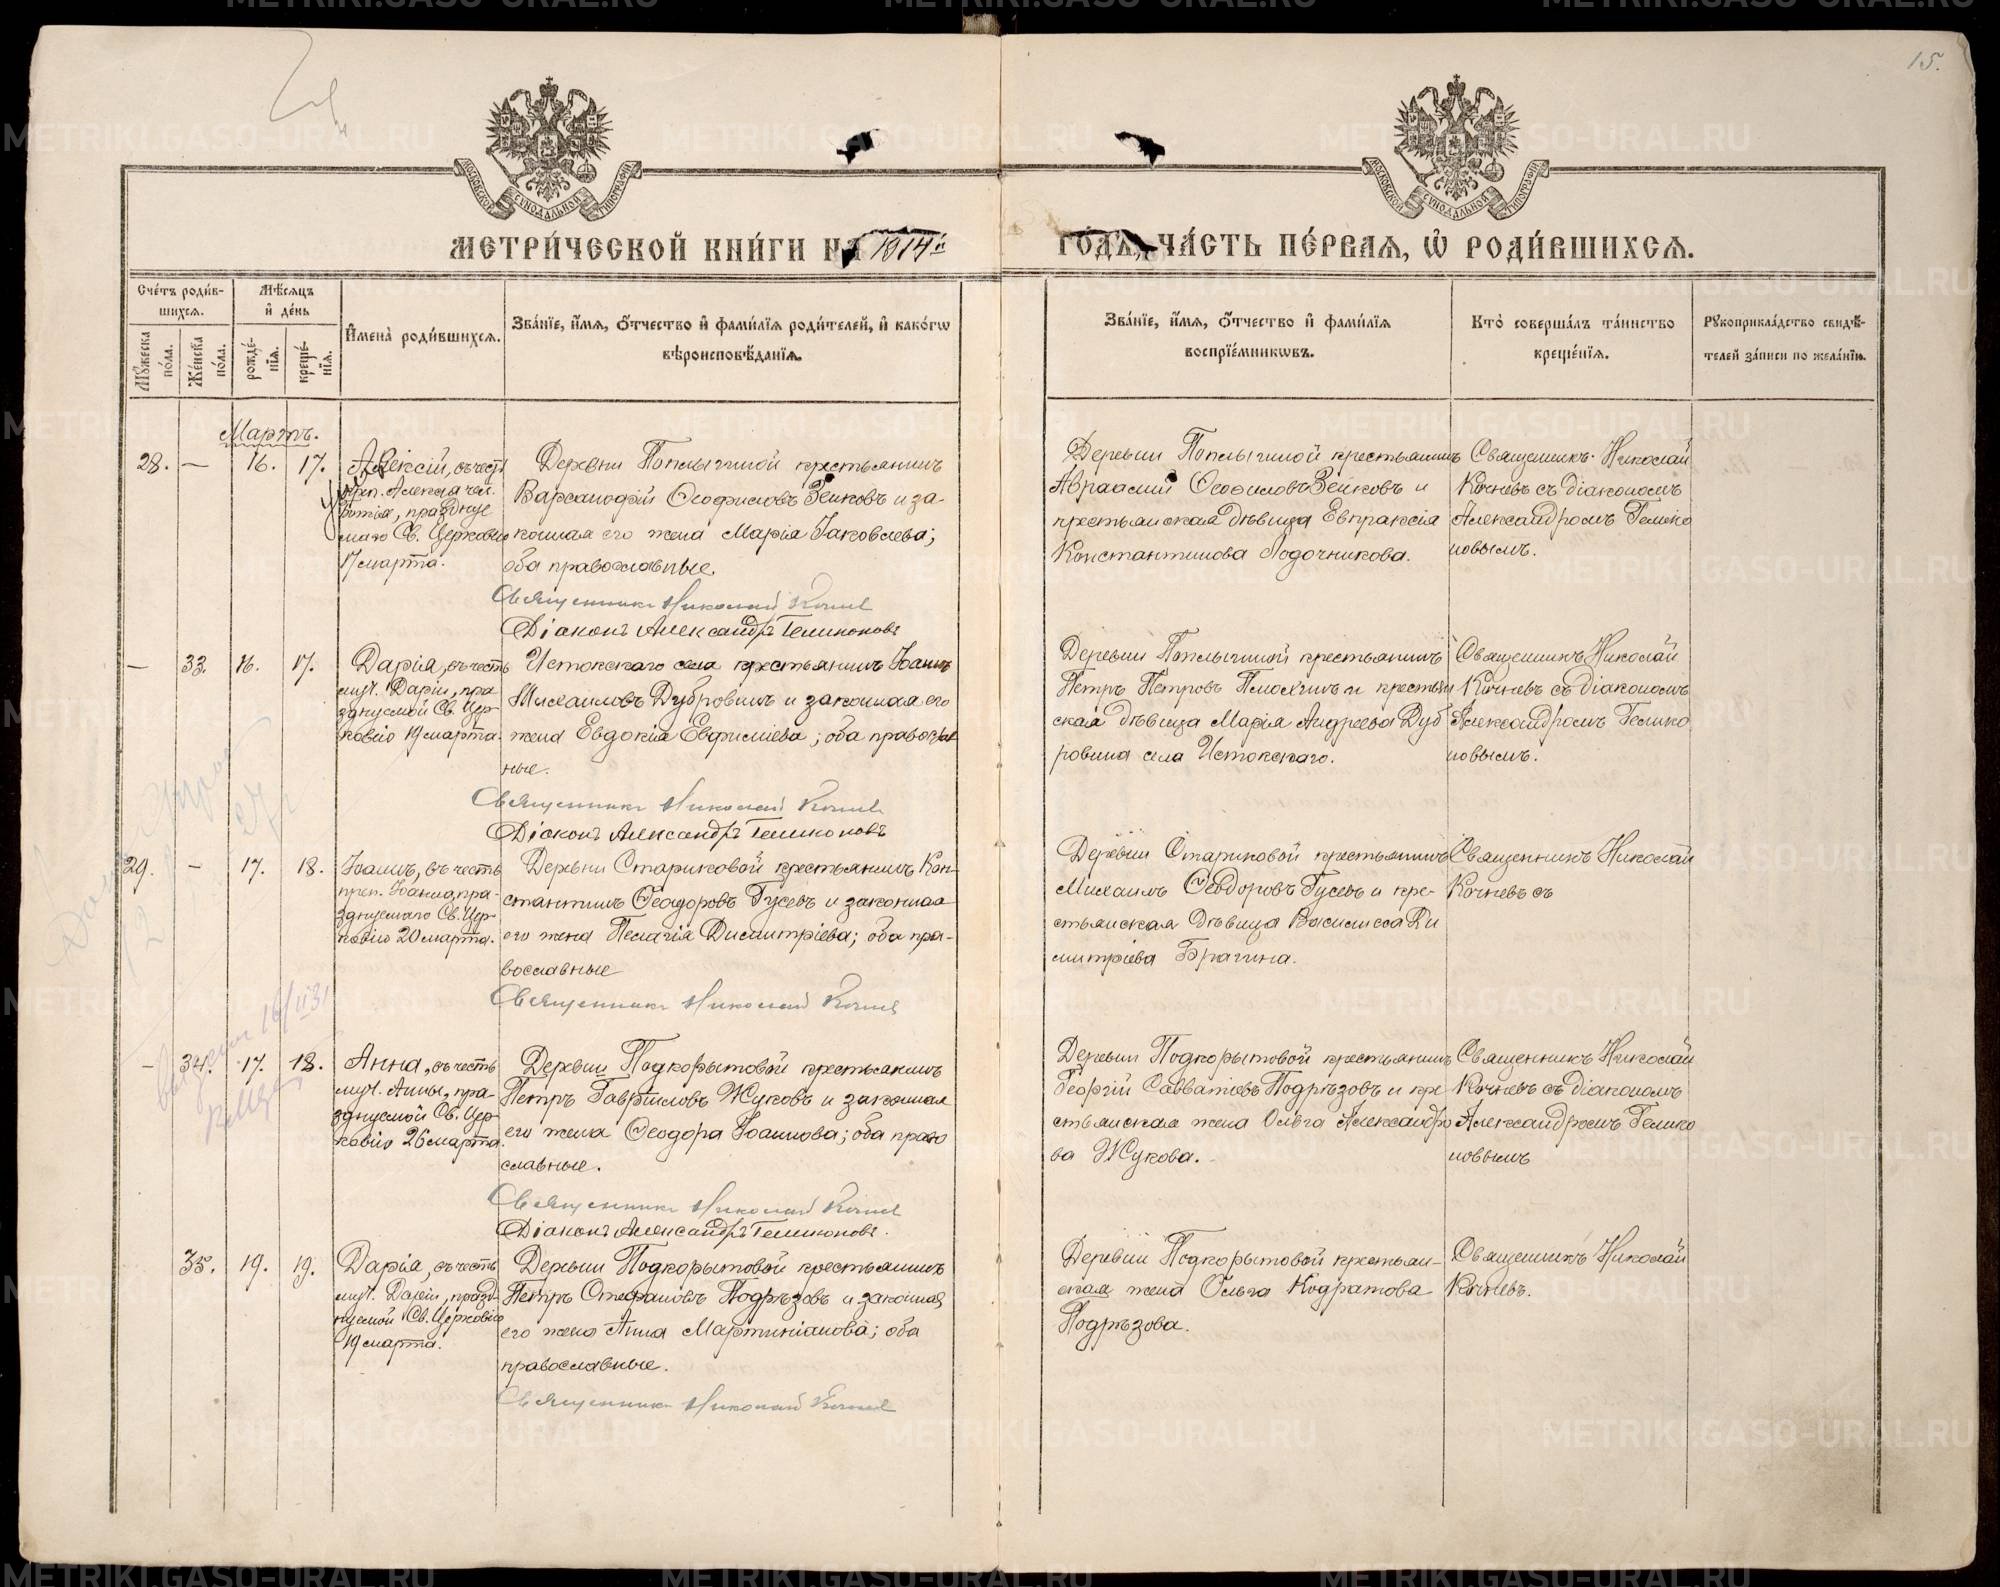 15.
МОСКОВСКОЙ СѴНОДАЛЬНОЙ ТИПОГРАФІИ
МОСКОВСКОЙ СѴНОДАЛЬНОЙ ТИПОГРАФІИ
МЕТРИ́ЧЕСКОЙ КНИ́ГИ НА 1914й
ГО́ДЪ, ЧА́СТЬ ПЕ́РВАѦ, Ѡ҆ РОДИ́ВШИХСѦ.
Сче́тъ роди́в-
шихсѧ.
Мꙋ́жеска по́ла.
Же́нска по́ла.
Мѣ́сѧцъ
и҆ де́нь
рожде́-
нїѧ.
креще́-
нїѧ.
И҆мена̀ роди́вшихсѧ.
Зва́нїе, и҆́мѧ, ѻ҆́тчество и҆ фами́лїѧ роди́телей, и҆ како́гѡ
вѣроисповѣ́данїѧ.
Зва́нїе, и҆́мѧ, ѻ҆́тчество и҆ фами́лїѧ
воспрїе́мникѡвъ.
Кто̀ соверша́лъ та́инство
креще́нїѧ.
Рꙋкоприкла́дство свидѣ́-
телей за́писи по жела́нїю.
Мартъ.
28. — 16. 17.
Алексій, въ честь
преп. Алексія чел.
Божія, праздну
маго Св. Церковію
17 марта.
Деревни Поплыгиной крестьянинъ
Варсанофій Ѳеофиловъ Зенковъ и за-
конная его жена Марія Іаковлева;
оба православные.
Священникъ Николай Кочнев
Діаконъ Александръ Геликоновъ
Деревни Поплыгиной крестьянинъ
Авраамий Ѳеофиловъ Зенковъ и
крестьянская дѣвица Евпраксія
Константинова Лодочникова.
Священникъ Николай
Кочневъ съ діакономъ
Александромъ Гелико
новымъ.
— 33. 16. 17.
Дарія, въ честь
муч. Даріи, пра
зднуемой Св. Цер-
ковію 19 марта.
Истокскаго села крестьянинъ Іоаннъ
Михаиловъ Дубровинъ и законная его
жена Евдокія Евфиміева; оба православ
ные.
Священникъ Николай Кочнев
Діаконъ Александръ Геликоновъ
Деревни Поплыгиной крестьянинъ
Петръ Петровъ и крестьян
ская дѣвица Марія Андреева Дуб
ровина села Истокскаго.
Священникъ Николай
Кочневъ съ діакономъ
Александромъ Гелико
новымъ.
29. — 17. 18.
Іоаннъ, въ честь
преп. Іоанна, пра-
зднуемаго Св. Цер-
ковію 20 марта.
Деревни Стариковой крестьянинъ Кон-
стантинъ Ѳеодоровъ Гусевъ и законная
его жена Пелагія Димитріева; оба пра-
вославные
Священникъ Николай Кочнев
Деревни Стариковой крестьянинъ
Михаилъ Ѳеодоровъ Гусевъ и кре-
стьянская дѣвица Василисса Ди
митріева Брагина.
Священникъ Николай
Кочневъ съ
— 34. 17. 18.
Анна, въ честь
муч. Анны, пра-
зднуемой Св. Цер
ковію 26 марта.
Деревни Подкорытовой крестьянинъ
Петръ Гавриловъ Жуковъ и законная
его жена Ѳеодора Іоаннова; оба право
славные.
Священникъ Николай Кочнев
Діаконъ Александръ Геликоновъ.
Деревни Подкорытовой крестьянинъ
Георгій Савватіевъ Подрѣзовъ и кре
стьянская жена Ольга Александро
ва Жукова.
Священникъ Николай
Кочневъ съ діакономъ
Александромъ Гелико
новымъ
35. 19. 19.
Дарія, въ честь
муч. Даріи, празд-
нуемой Св. Церковію
19 марта.
Деревни Подкорытовой крестьянинъ
Петръ Стефановъ Подрѣзовъ и законная
его жена Анна Мартиніанова; оба
православные.
Священникъ Николай Кочнев
Деревни Подкорытовой крестьян-
ская жена Ольга Кодратова
Подрѣзова.
Священникъ Николай
Кочневъ.
METRIKI.GASO-URAL.RU